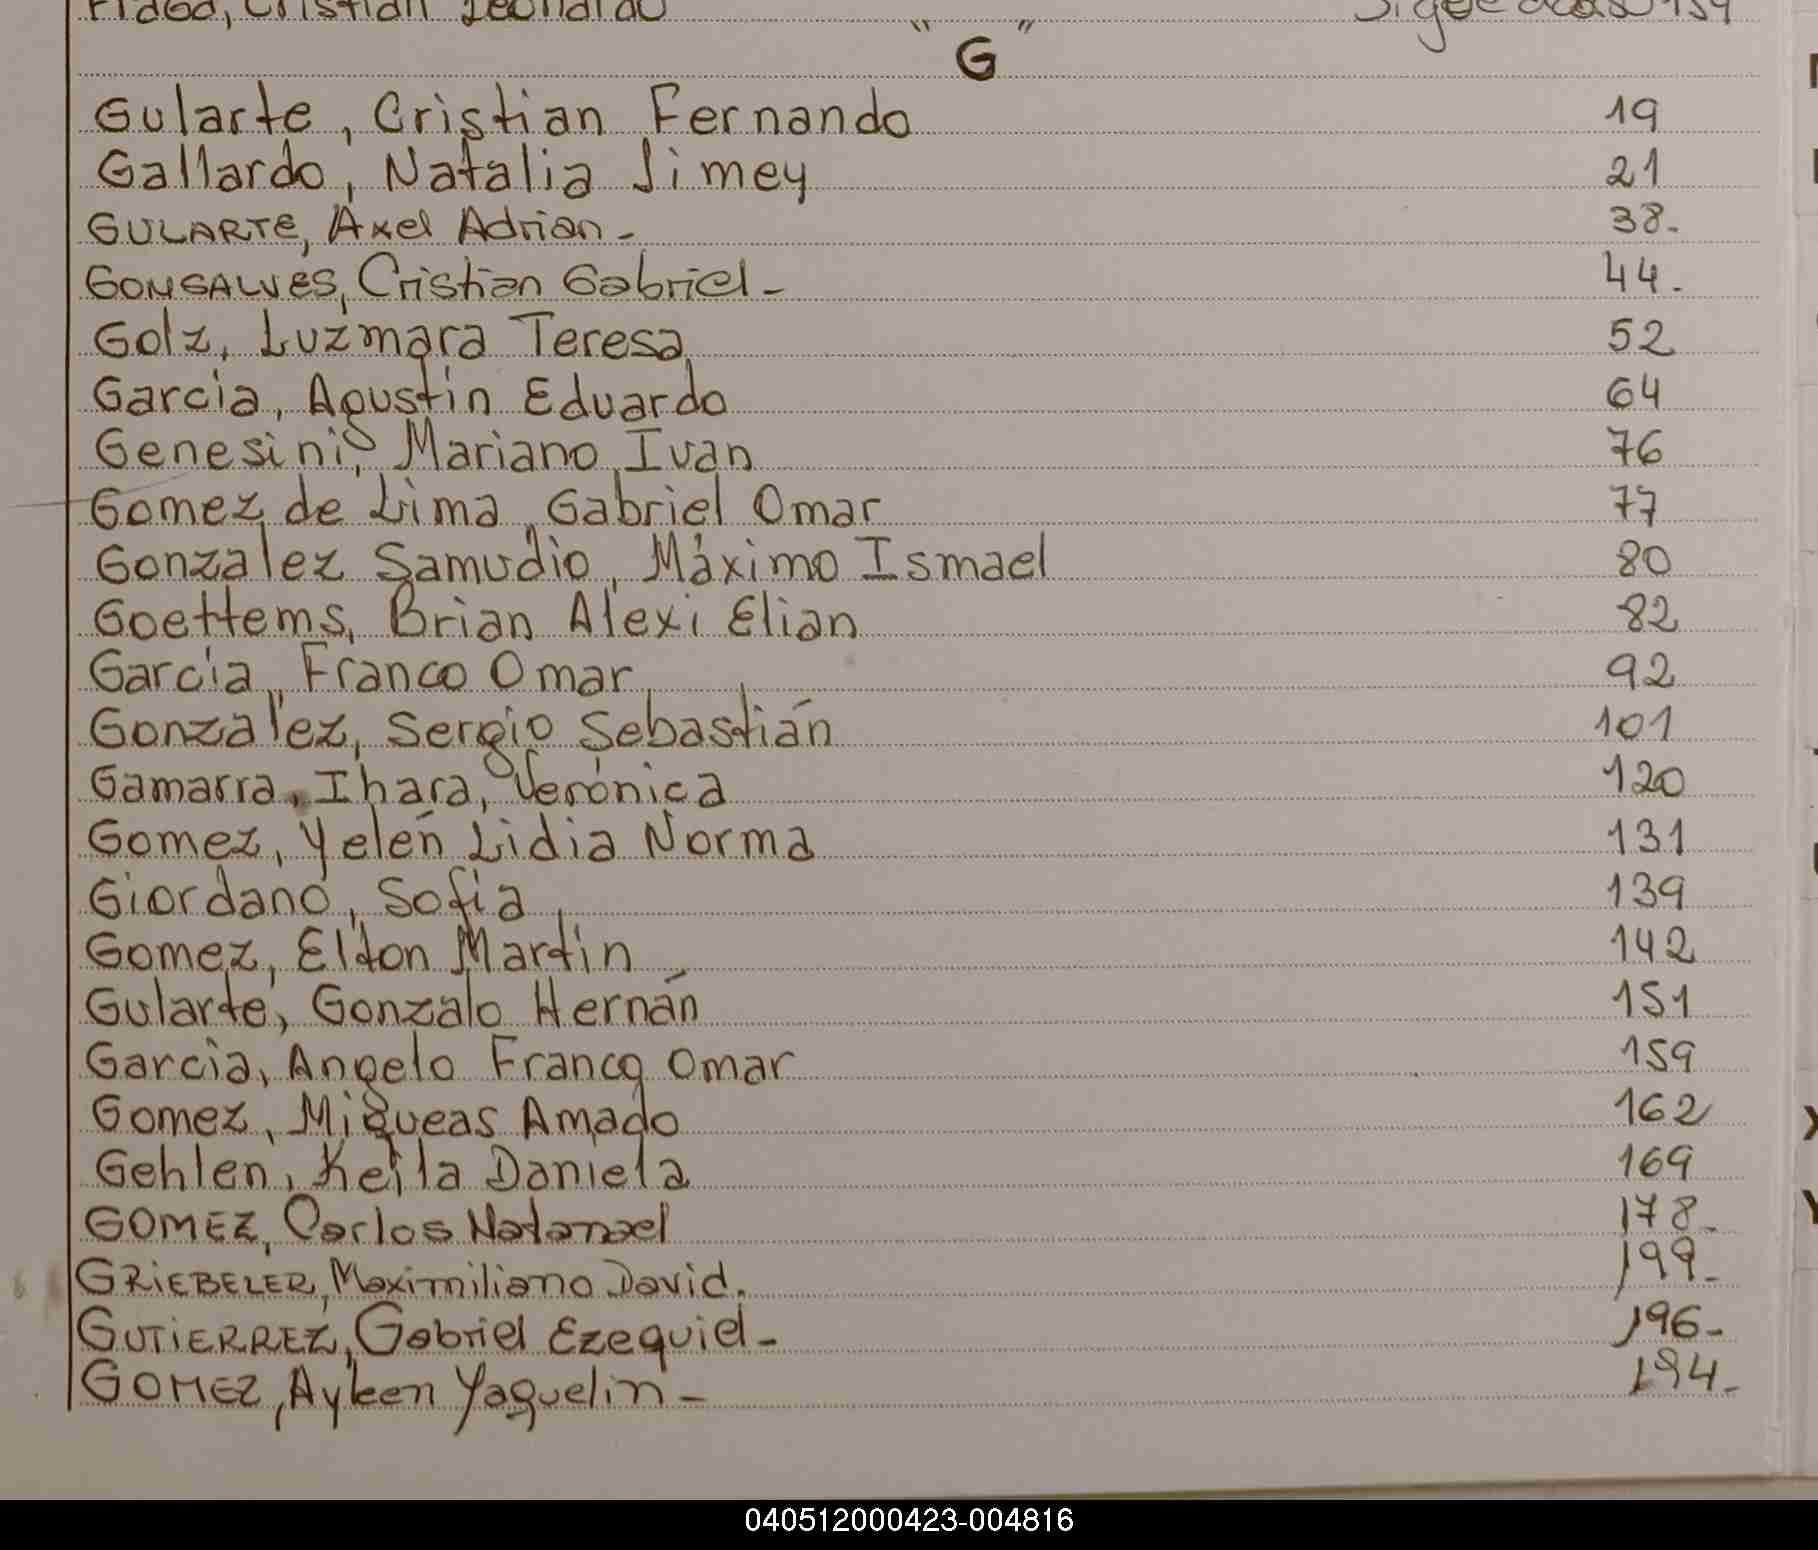 Cristian Leonardo
"G"
Gularte, Cristian Fernando 19
Gallardo, Natalia Jimey 21
GULARTE, Axel Adrian- 38.
GONSALVES, Cristian Gabriel- 44.
Golz, Luzmara Teresa 52
Garcia, Agustín Eduardo 64
Genesini, Mariano Ivan 76
Gomez de Lima, Gabriel Omar 77
Gonzalez Samudio, Máximo Ismael 80
Goettems, Brian Alexi Elian 82
Garcia, Franco Omar 92
Gonzalez, Sergio Sebastián 101
Gamarra, Ihara, Verónica 120
Gomez, Yelén Lidia Norma 131
Giordano, Sofia 139
Gomez, Elton Martin 142
Gularte, Gonzalo Hernán 151
Garcia, Angelo Franco Omar 159
Gomez, Miqueas Amado 162
Gehlen, Keila Daniela 169
GOMEZ, Carlos Natanael 178-
GRIEBELER, Maximiliano David. 199-
GUTIERREZ, Gabriel Ezequiel- 196-
GOMEZ, Ayleen Yaquelin- 194-
040512000423-004816